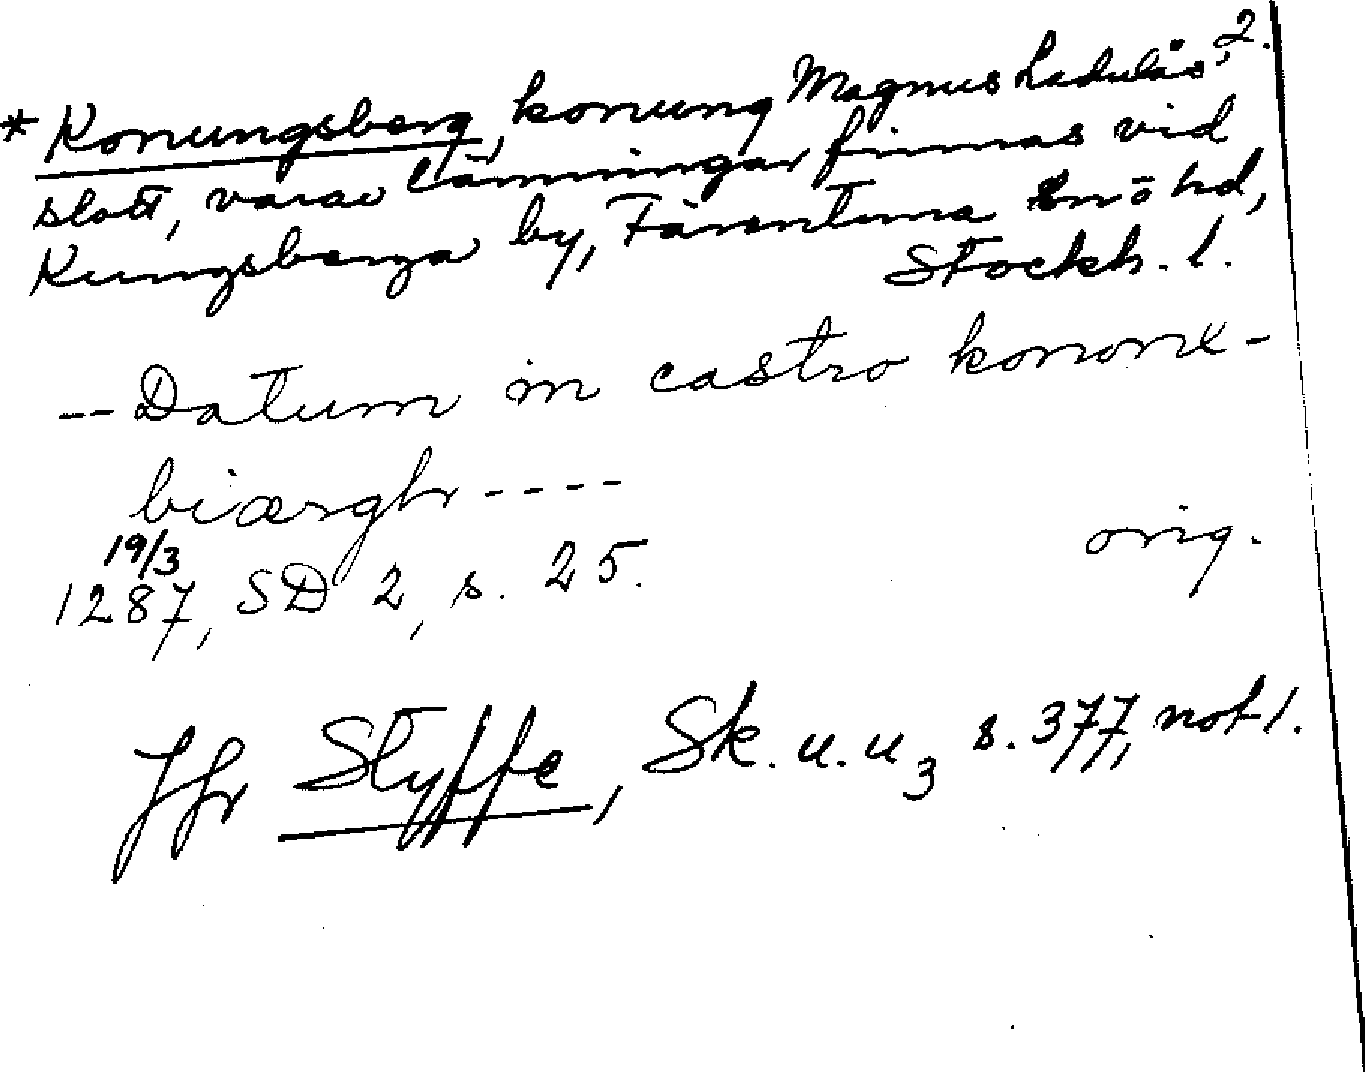 2.
* Konungsberg, konung Magnus Ladulås'
slott, varav lämningar finnas vid
Kungsberga by, Färentuna sn o hd,
Stockh. l.
-- Datum in castro kononx-
biærghr ----
orig.
19/3
1287, SD 2, s. 25.
Jfr Styffe, Sk. u. u 3 s. 377, not 1.